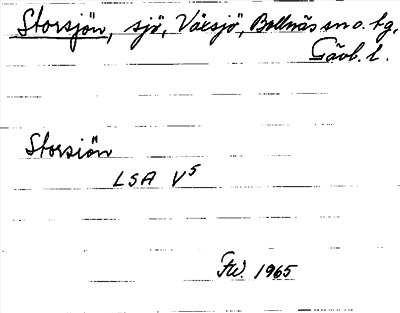 Storsjön, sjö, Växsjö, Bollnäs sn o. tg,
Gävb. l.
Storsjön
LSA V5
FW. 1965